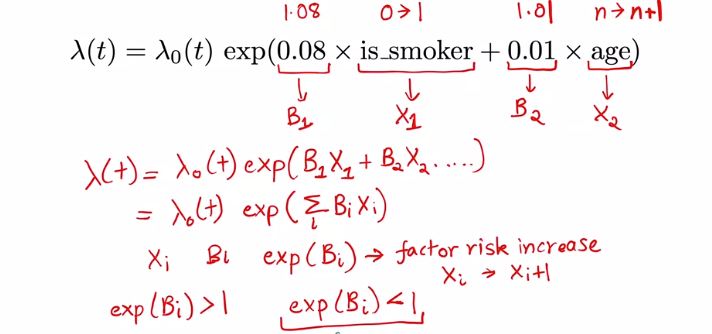 1.08 0→1 1.01 n→n+1
λ(t) = λ₀(t) exp(0.08 × is_smoker + 0.01 × age)
B₁ X₁ B₂ X₂
λ(t) = λ₀(t) exp(B₁X₁ + B₂X₂ .....)
= λ₀(t) exp(∑ᵢ BᵢXᵢ)
Xᵢ Bᵢ exp(Bᵢ) → factor risk increase
Xᵢ → Xᵢ+1
exp(Bᵢ)>1 exp(Bᵢ)<1